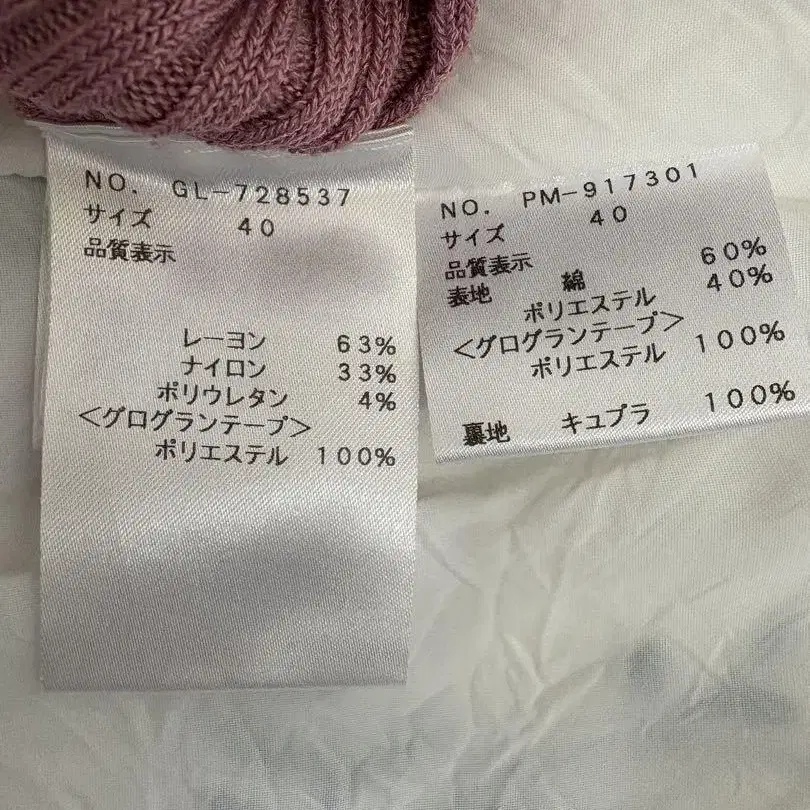 NO. GL-728537
サイズ 40
品質表示
レーヨン 63%
ナイロン 33%
ポリウレタン 4%
<グログランテープ>
ポリエステル 100%
NO. PM-917301
サイズ 40
品質表示
表地 綿 60%
ポリエステル 40%
<グログランテープ>
ポリエステル 100%
裏地 キュプラ 100%